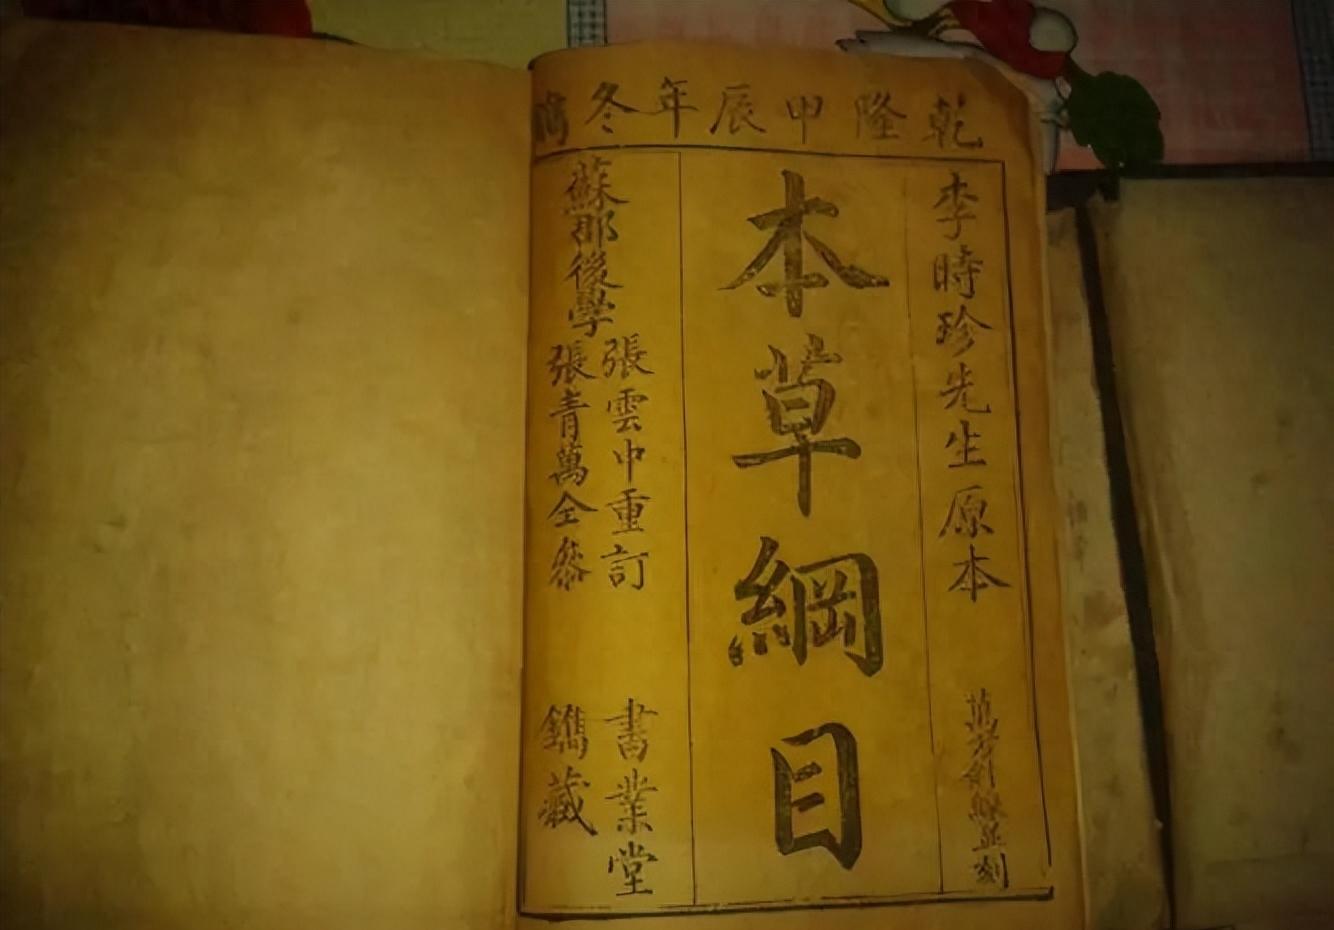 乾隆甲辰年冬鐫
李時珍先生原本
萬方針線並刻
本草綱目
蘇郡後學
張雲中重訂
張青萬全參
書業堂
鐫藏